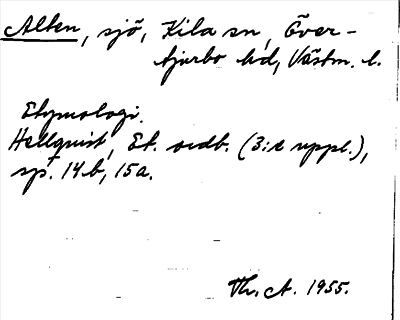 Alten, sjö, Kila sn, Över-
tjurbo hd, Västm. l.
Etymologi.
Hellquist, Et. ordb. (3:e uppl.),
sp. 14b, 15a.
Th. A. 1955.